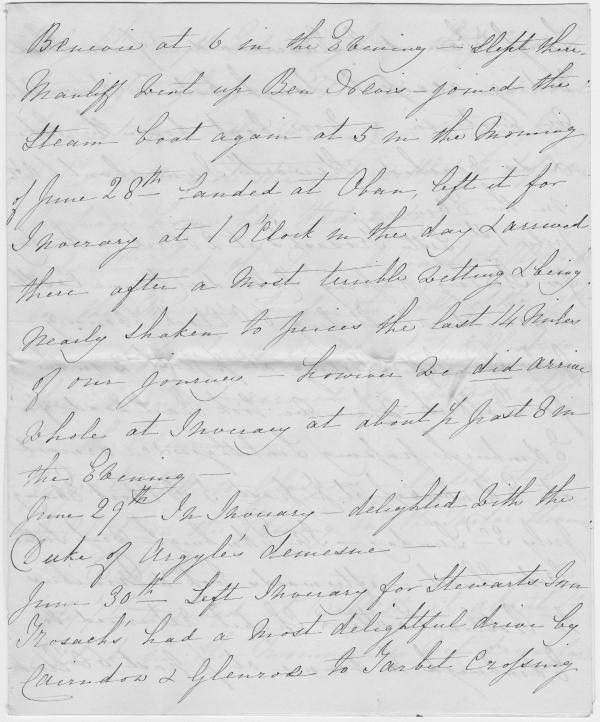 Benevie at 6 in the Evening – slept there.
Manliff went up Ben Nevis – joined the
Steam boat again at 5 in the Morning
of June 28th landed at Oban, left it for
Inverary at 1 O'Clock in the day & arrived
there after a most terrible wetting & being
nearly shaken to peices the last 14 Miles
of our Journey – however we did arrive
whole at Inverary at about ½ past 8 in
the Evening –
June 29th – In Inverary – delighted with the
Duke of Argyle's demesne –
June 30th Left Inverary for Stewarts Inn
Trosach's had a most delightful drive by
Cairndow & Glencroe to Tarbet Crossing